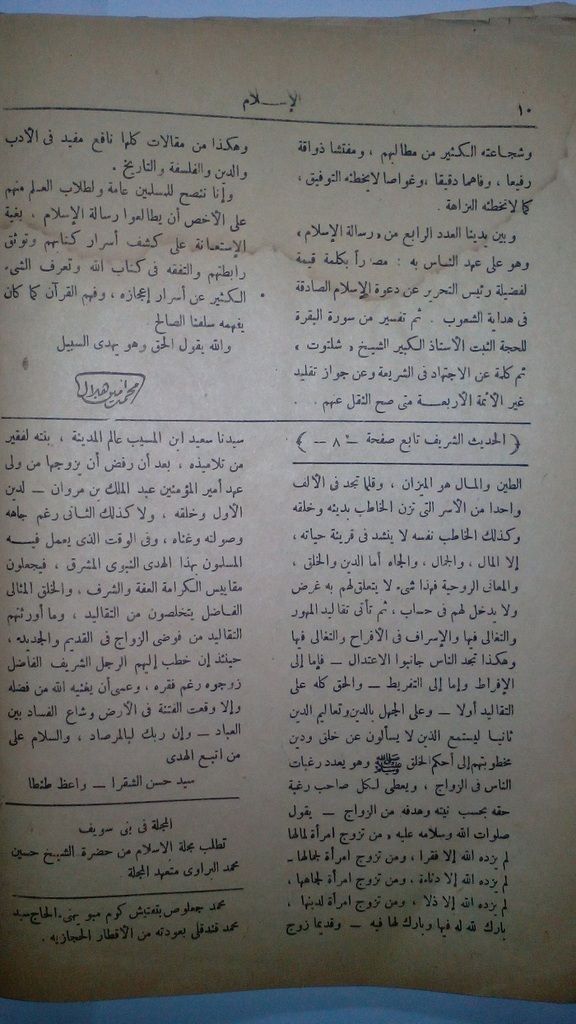 ١٠
الإسلام
وشجاعته الكثير من مطالبهم ، ومفتشا ذواقة
رفيعا ، وفاهما دقيقا ، وغواصا لا يخطئه التوفيق ،
كما لا تخطئه النزاهة .
وبين يدينا العدد الرابع من « رسالة الإسلام »
وهو على عهد الناس به : مصدراً بكلمة قيمة
لفضيلة رئيس التحرير عن دعوة الإسلام الصادقة
فى هداية الشعوب . ثم تفسير من سورة البقرة
للحجة الثبت الأستاذ الكبير الشيخ « شلتوت »
ثم كلمة عن الاجتهاد فى الشريعة وعن جواز تقليد
غير الأئمة الأربعة متى صح النقل عنهم . .
وهكذا من مقالات كلها نافع مفيد فى الأدب
والدين والفلسفة والتاريخ .
وأنا ننصح للمسلمين عامة ولطلاب العلم منهم
على الأخص أن يطالعوا رسالة الإسلام . بغية
الإستعانة على كشف أسرار كتابهم وتوثق
رابطتهم والتفقه فى كتاب الله وتعرف الشىء
الكثير عن أسرار إعجازه ، وفهم القرآن كما كان
يفهمه سلفنا الصالح
والله يقول الحق وهو يهدى السبيل
محمد أمين هلال
( الحديث الشريف تابع صفحة — ٨ — )
الطين والمال هو الميزان ، وقلما تجد فى الألف
واحدا من الأسر التى تزن الخاطب بدينه وخلقه
وكذلك الخاطب نفسه لا ينشد فى قرينة حياته ،
إلا المال ، والجمال ، والجاه أما الدين والخلق ،
والمعانى الروحية فهذا شىء لا يتعلق لهم به غرض
ولا يدخل لهم فى حساب ، ثم تأتى تقاليد المهور
والتغالى فيها والإسراف فى الأفراح والتغالى فيها
وهكذا تجد الناس جانبوا الاعتدال — فإما إلى
الإفراط وإما إلى التفريط — والحق كله على
التقاليد أولا — وعلى الجهل بالدين وتعاليم الدين
ثانيا ليستمع الذين لا يسألون عن خلق ودين
مخطوبتهم إلى أحكم الخلق ﷺ وهو يعدد رغبات
الناس فى الزواج ، ويعطى لكل صاحب رغبة
حقه بحسب نيته وهدفه من الزواج — يقول
صلوات الله وسلامه عليه « من تزوج امرأة لمالها
لم يزده الله إلا فقرا ، ومن تزوج امرأة لجمالها ـ
لم يزده الله إلا دناءة ، ومن تزوج امرأة لجاهها ،
لم يزده الله إلا ذلا ، ومن تزوج امرأة لدينها ،
بارك لله له فيها وبارك لها فيه — وقديما زوج
سيدنا سعيد ابن المسيب عالم المدينة ، بنته لفقير
من تلاميذه ، بعد أن رفض أن يزوجها من ولى
عهد أمير المؤمنين عبد الملك بن مروان — لدين
الأول وخلقه ، ولا كذلك الثانى رغم جاهه
وصولته وغناه ، وفى الوقت الذى يعمل فيه
المسلمون بهذا الهدى النبوى المشرق ، فيجعلون
مقاييس الكرامة العفة والشرف ، والخلق المثالى
الفاضل يتخلصون من التقاليد ، وما أورثتهم
التقاليد من فوضى الزواج فى القديم والجديد ،
حينئذ إن خطب إليهم الرجل الشريف الفاضل
زوجوه رغم فقره ، وعسى أن يغنيه الله من فضله
وإلا وقعت الفتنة فى الأرض وشاع الفساد بين
العباد — وإن ربك لبالمرصاد ، والسلام على
من اتبع الهدى
سيد حسن الشقرا — واعظ طنطا
المجلة فى بنى سويف
تطلب مجلة الاسلام من حضرة الشيخ حسين
محمد البراوى متعهد المجلة
محمد جعلوص بتفتيش كوم ميو يهنىء الحاج سيد
محمد قندقلى بعودته من الأقطار الحجازيه .